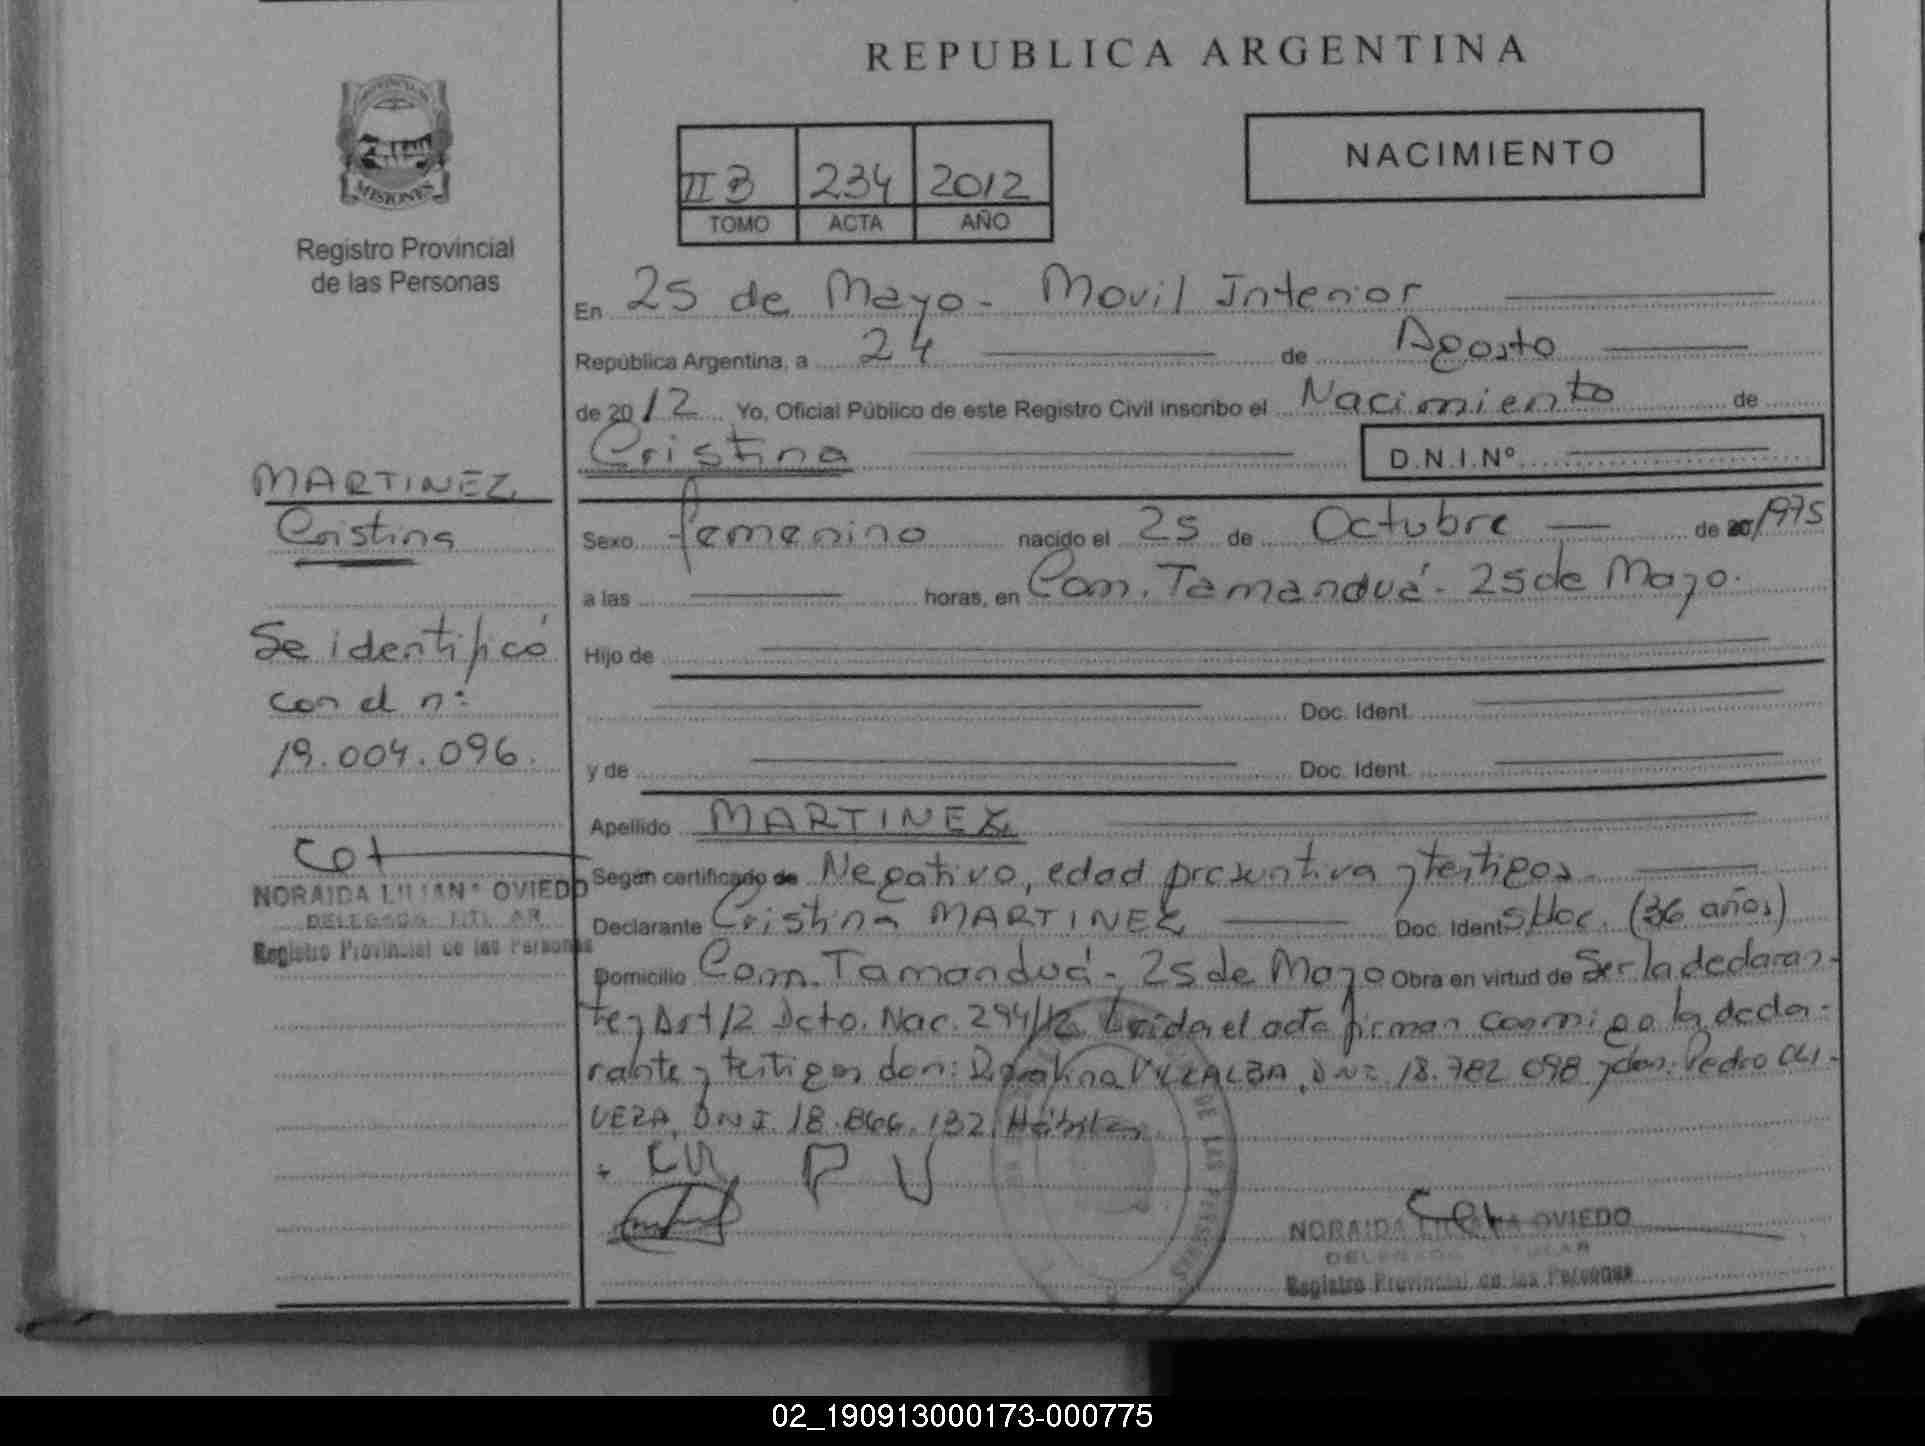 REPUBLICA ARGENTINA
MISIONES
Registro Provincial
de las Personas
II B 234 2012
TOMO ACTA AÑO
NACIMIENTO
En 25 de Mayo - Movil Interior
República Argentina, a 24 de Agosto
de 2012 Yo, Oficial Público de este Registro Civil inscribo el Nacimiento de
Cristina D.N.I.Nº
MARTINEZ
Cristina
Se identificó
con el nº
19.004.096.
NORAIDA LILIANA OVIEDO
DELEGADA TITULAR
Registro Provincial de las Personas
Sexo femenino nacido el 25 de Octubre de 20 1975
a las horas, en Com. Tamanduá - 25 de Mayo.
Hijo de
Doc. Ident.
y de Doc. Ident.
Apellido MARTINEZ
Según certificado de Negativo, edad presuntiva y testigos
Declarante Cristina MARTINEZ Doc. Ident S/doc. (36 años)
Domicilio Com. Tamanduá - 25 de Mayo Obra en virtud de Ser la declaran-
te y Art 12 Dcto. Nac. 294/12. Leida el acta firman conmigo la decla-
rante y testigos don: VILLALBA, DNI 18.782.098 y don: Pedro OLI-
VERA, DNI. 18.866.132. Hábiles
+ CM P V
DE LAS PERSONAS
NORAIDA LILIANA OVIEDO
DELEGADA TITULAR
Registro Provincial de las Personas
02_190913000173-000775